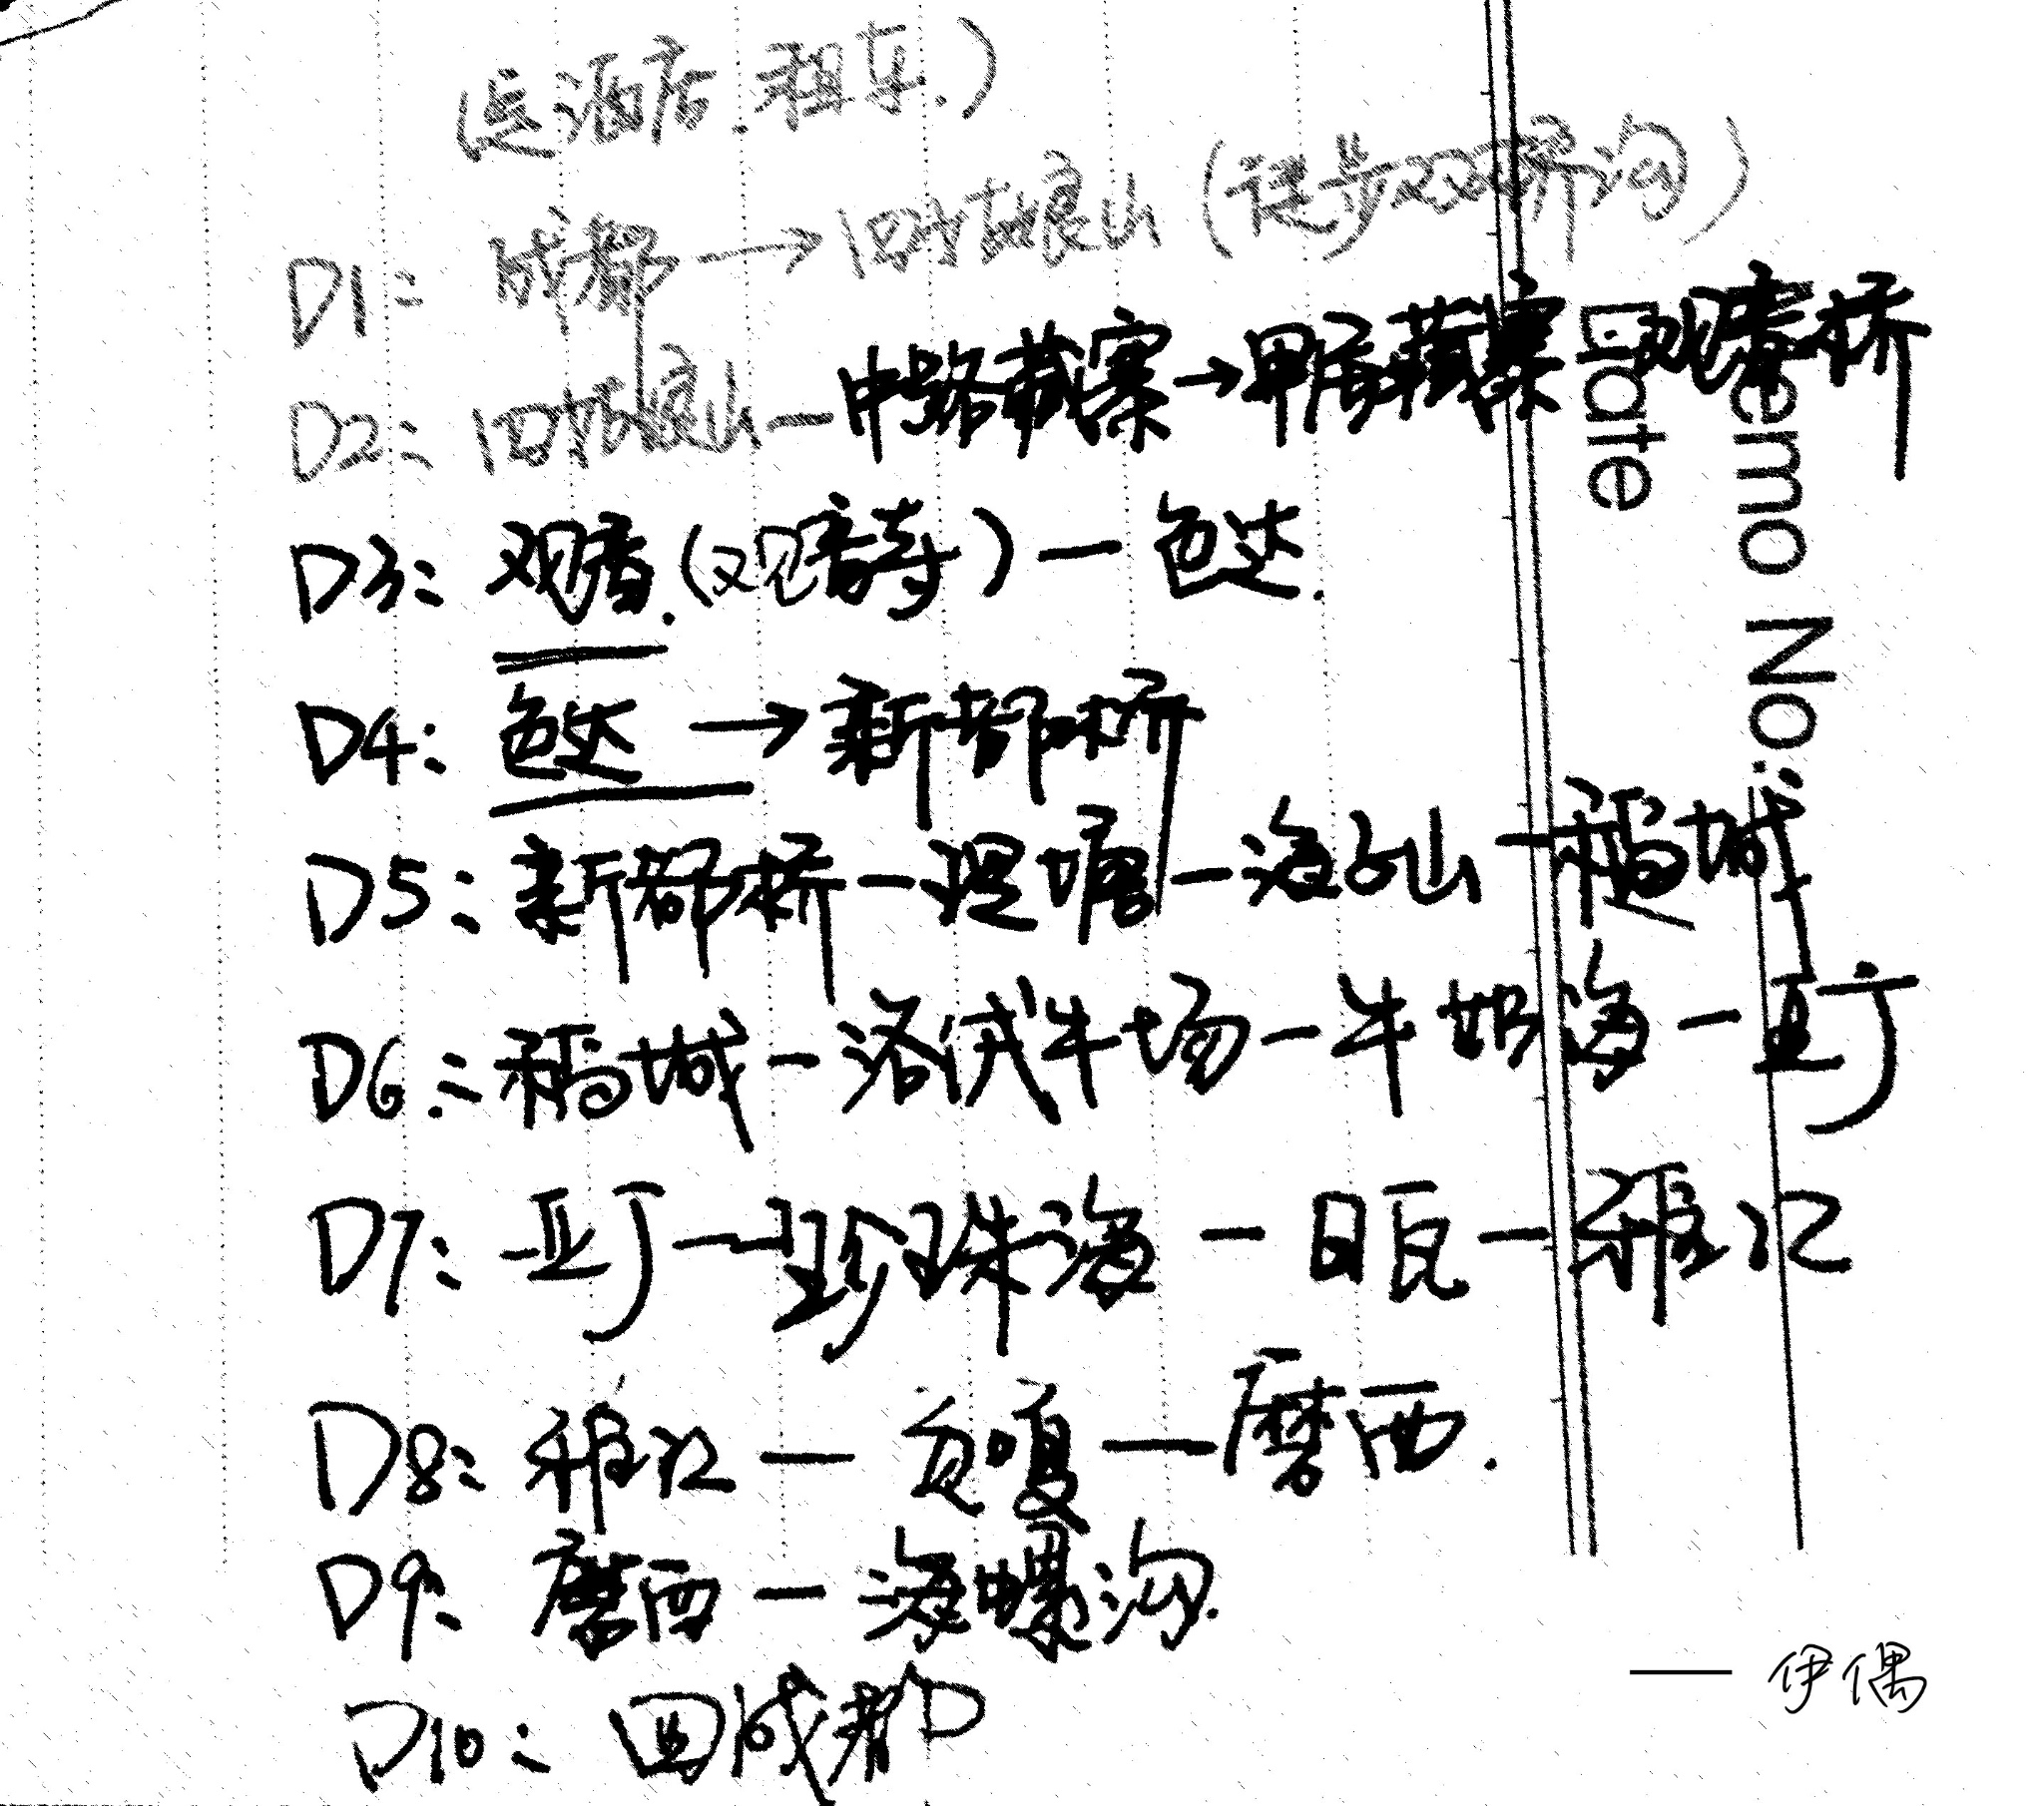 (定酒店.租车.)
D1: 成都→四姑娘山(徒步双桥沟)
D2: 四姑娘山—中路藏寨→甲居藏寨 观音桥
D3: 观音.(观音寺)—色达.
D4: 色达→新都桥
D5: 新都桥—理塘—海子山—稻城
D6: 稻城—洛绒牛场—牛奶海—亚丁
D7: 亚丁—珍珠海—日瓦—雅江
D8: 雅江—贡嘎—磨西.
D9: 磨西—海螺沟.
D10: 回成都
Date
emo No.:
—伊偶